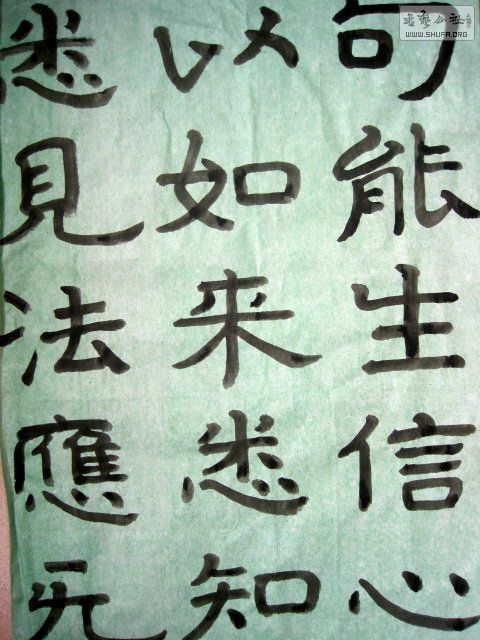 句能生信心
以如来悉知
悉見法應无
WWW.SHUFA.ORG